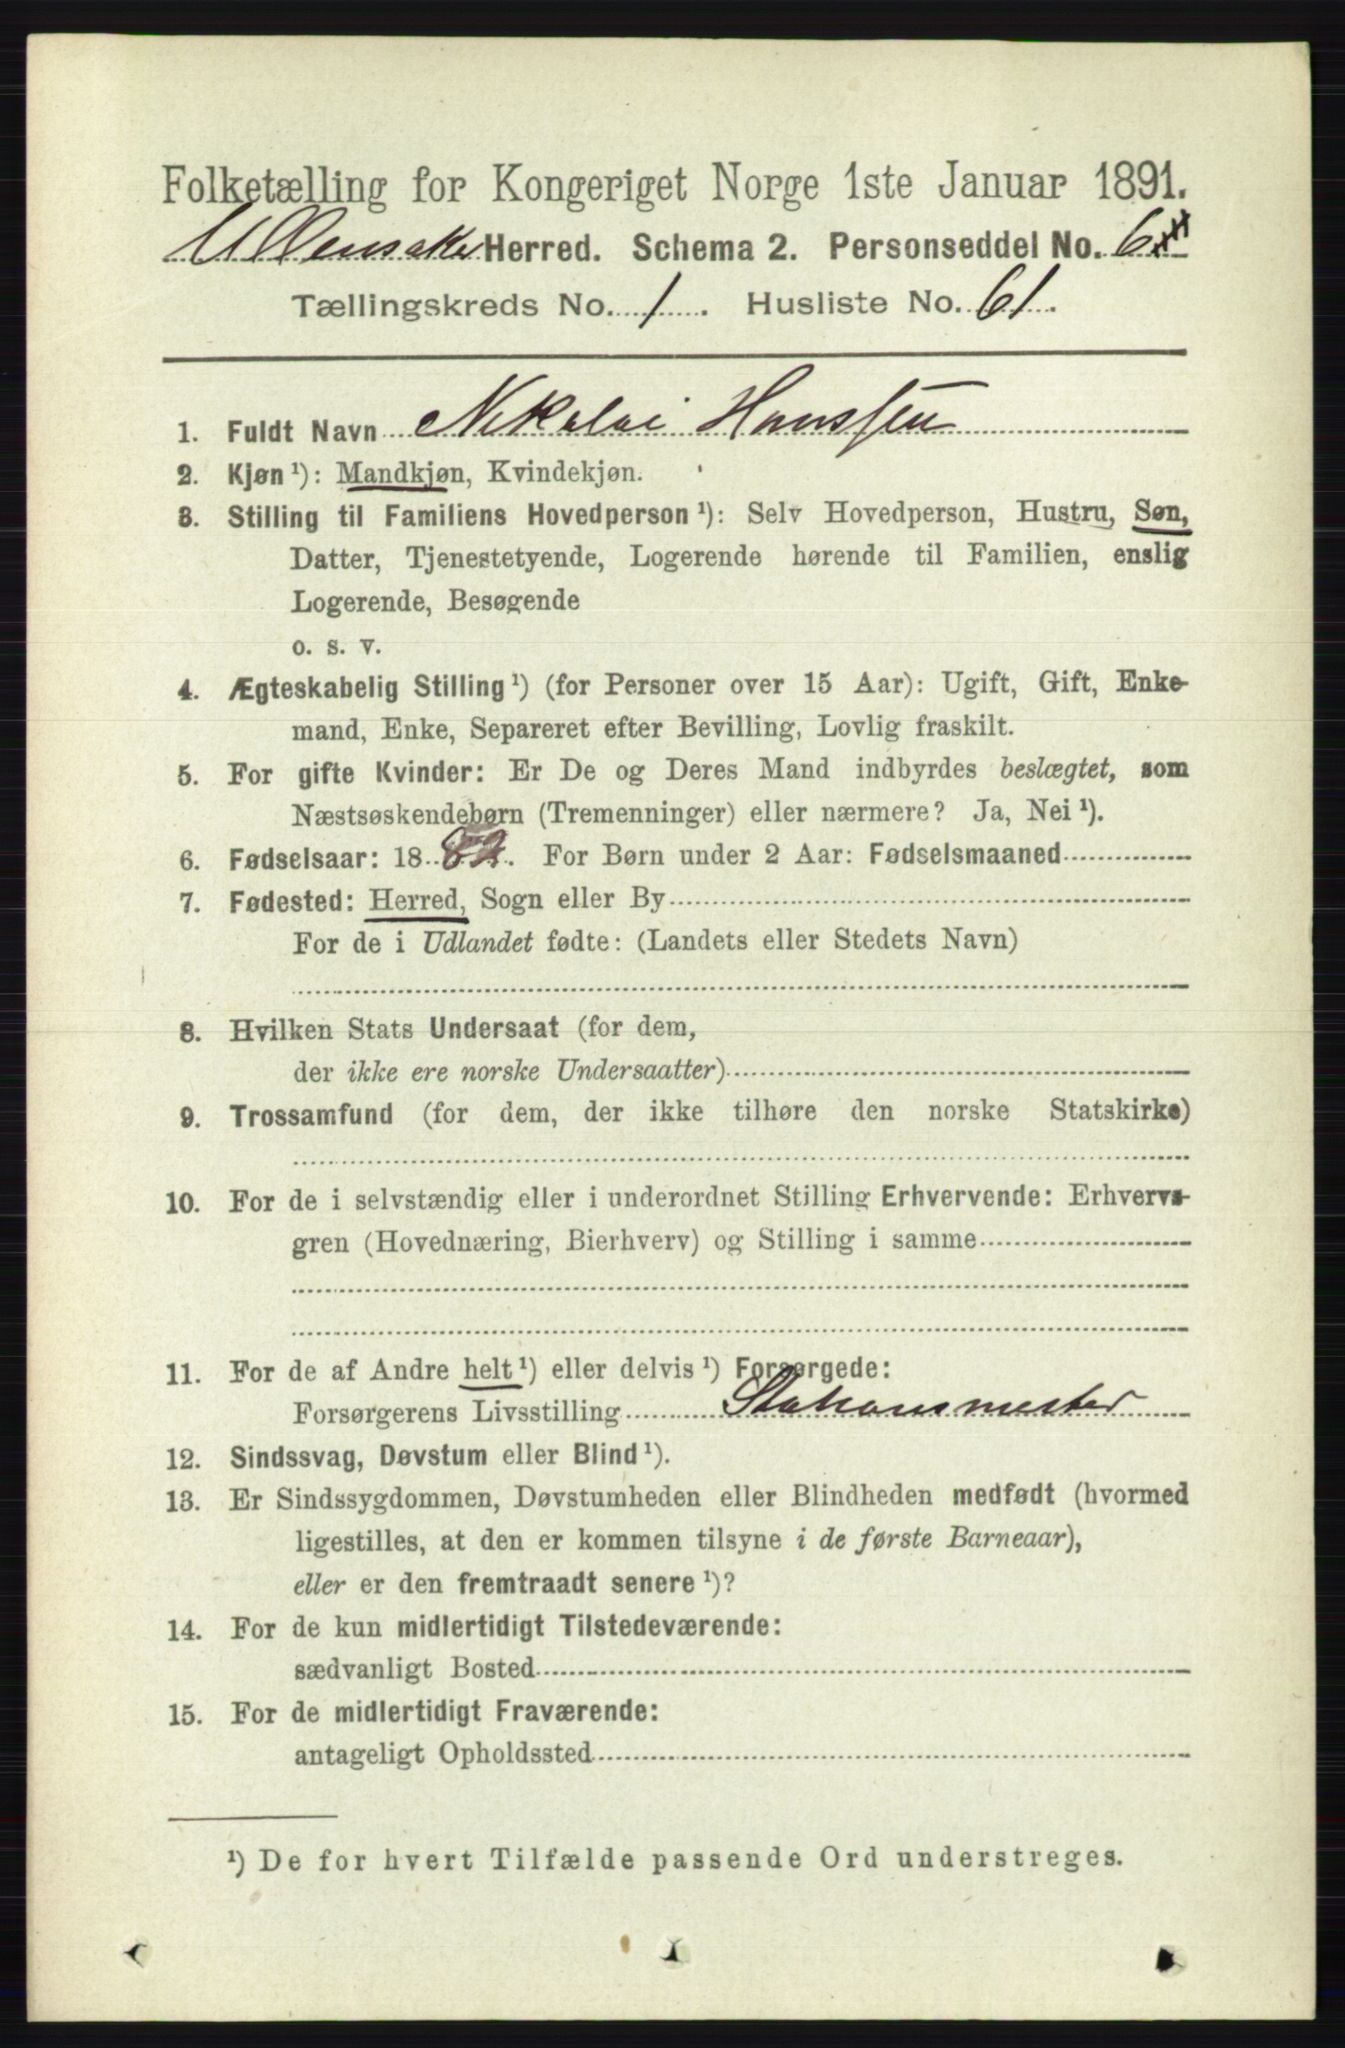 Folketælling for Kongeriget Norge 1ste Januar 1891.
Ullensaker Herred. Schema 2. Personseddel No. 6
Tællingskreds No. 1. Husliste No. 61.
1. Fuldt Navn Nikolai Hanssen
2. Kjøn ¹): Mandkjøn, Kvindekjøn.
3. Stilling til Familiens Hovedperson ¹): Selv Hovedperson, Hustru, Søn,
Datter, Tjenestetyende, Logerende hørende til Familien, enslig
Logerende, Besøgende
o. s. v.
4. Ægteskabelig Stilling ¹) (for Personer over 15 Aar): Ugift, Gift, Enke-
mand, Enke, Separeret efter Bevilling, Lovlig fraskilt.
5. For gifte Kvinder: Er De og Deres Mand indbyrdes beslægtet, som
Næstsøskendebørn (Tremenninger) eller nærmere? Ja, Nei ¹).
6. Fødselsaar: 1882. For Børn under 2 Aar: Fødselsmaaned
7. Fødested: Herred, Sogn eller By
For de i Udlandet fødte: (Landets eller Stedets Navn)
8. Hvilken Stats Undersaat (for dem,
der ikke ere norske Undersaatter)
9. Trossamfund (for dem, der ikke tilhøre den norske Statskirke)
10. For de i selvstændig eller i underordnet Stilling Erhvervende: Erhvervs-
gren (Hovednæring, Bierhverv) og Stilling i samme
11. For de af Andre helt ¹) eller delvis ¹) Forsørgede:
Forsørgerens Livsstilling Stationsmester
12. Sindssvag, Døvstum eller Blind ¹).
13. Er Sindssygdommen, Døvstumheden eller Blindheden medfødt (hvormed
ligestilles, at den er kommen tilsyne i de første Barneaar),
eller er den fremtraadt senere ¹)?
14. For de kun midlertidigt Tilstedeværende:
sædvanligt Bosted
15. For de midlertidigt Fraværende:
antageligt Opholdssted
¹) De for hvert Tilfælde passende Ord understreges.